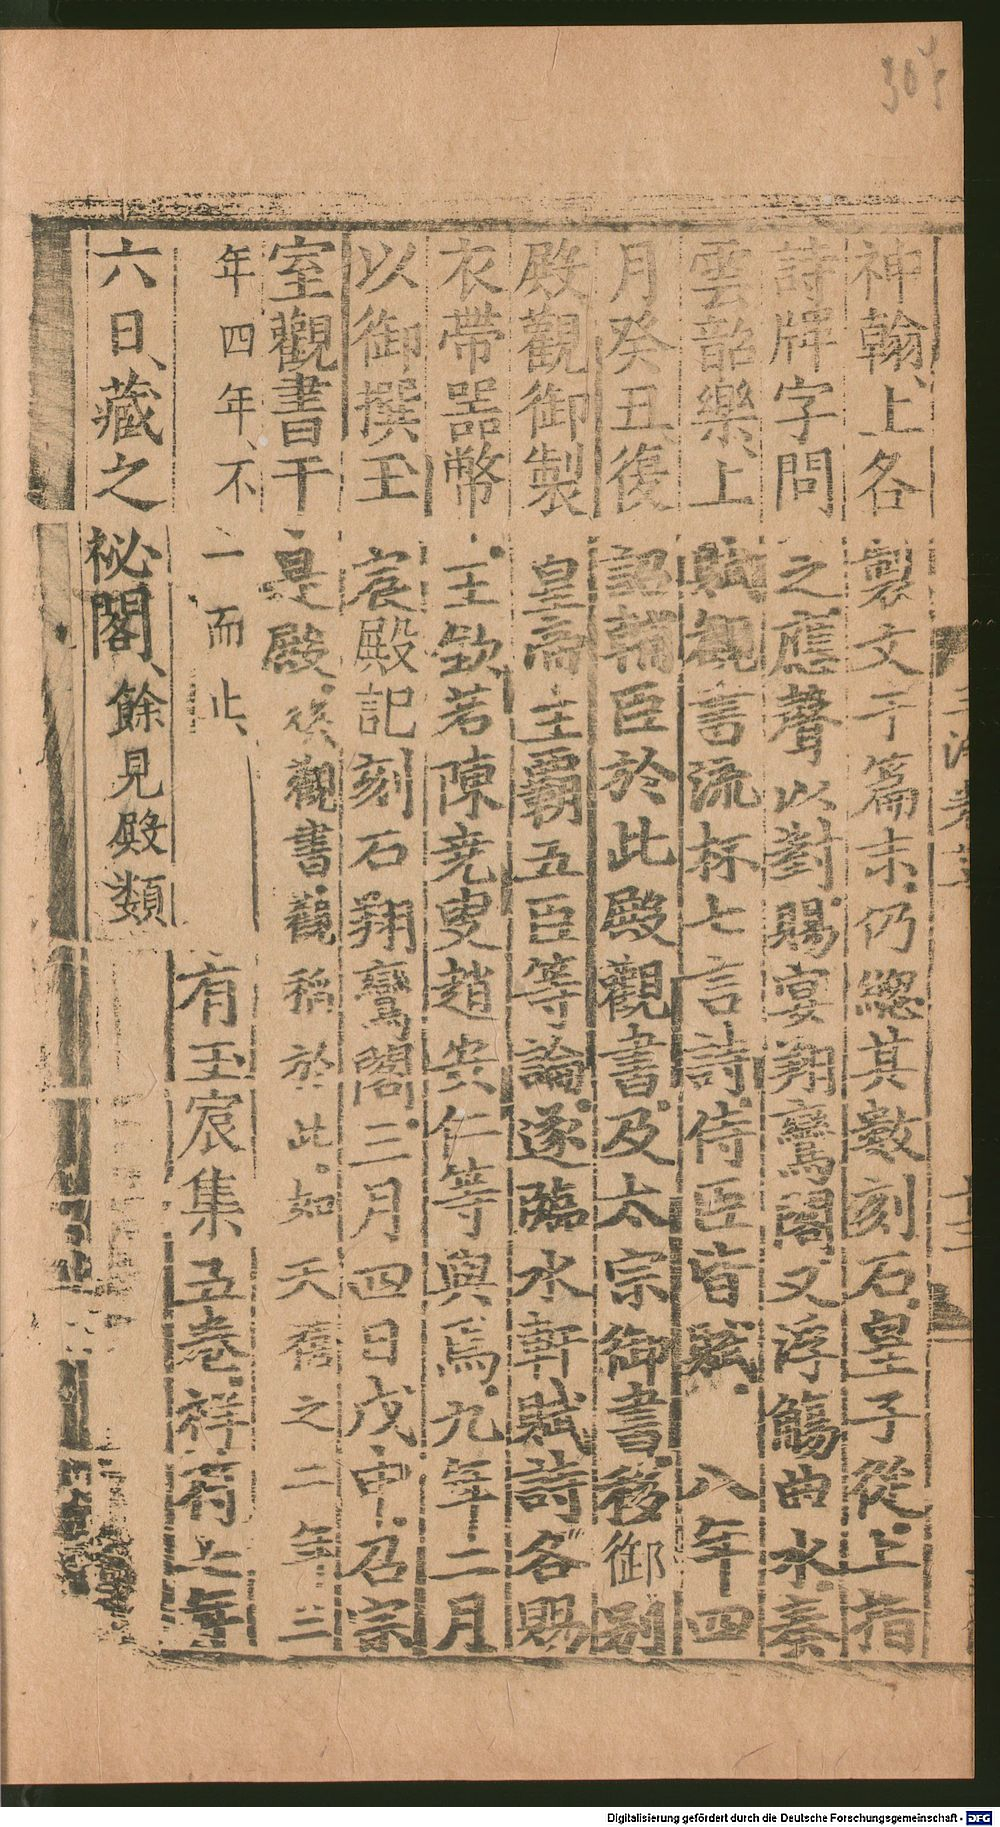 305
神翰、上各製文于篇末、仍總其數刻石、皇子從、上指
詩牌字問之應聲以對、賜宴翔鸞閣、又浮觴曲水、奏
雲韶樂、上賦觀書流杯七言詩、侍臣皆賦、八年四
月癸丑、復詔輔臣於此殿觀書、及太宗御書、移御別
殿觀御製皇帝王霸五臣等論、遂臨水軒賦詩、各賜
衣帶器幣、王欽若陳堯叟趙安仁等與焉、九年二月
以御撰玉宸殿記刻石翔鸞閣、三月四日戊申、召宗
室觀書于是殿、後觀書觀稱於此、如天舊之二年三
年四年、不一而止
有玉宸集五卷、祥符七年
六日、藏之祕閣、餘見殿類
Digitalisierung gefördert durch die Deutsche Forschungsgemeinschaft - DFG